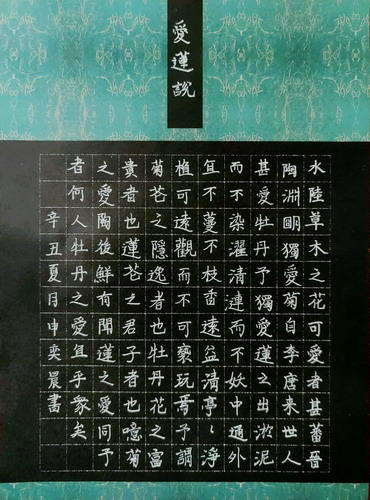 愛蓮說
水陸草木之花可愛者甚蕃晉
陶淵朙獨愛菊自李唐来世人
甚愛牡丹予獨愛蓮之出淤泥
而不染濯清漣而不妖中通外
直不蔓不枝香遠益清亭〻淨
植可遠觀而不可褻玩焉予謂
菊花之隱逸者也牡丹花之富
貴者也蓮花之君子者也噫菊
之愛陶後鮮有聞蓮之愛同予
者何人牡丹之愛宜乎眾矣
辛丑夏月申奕晨書